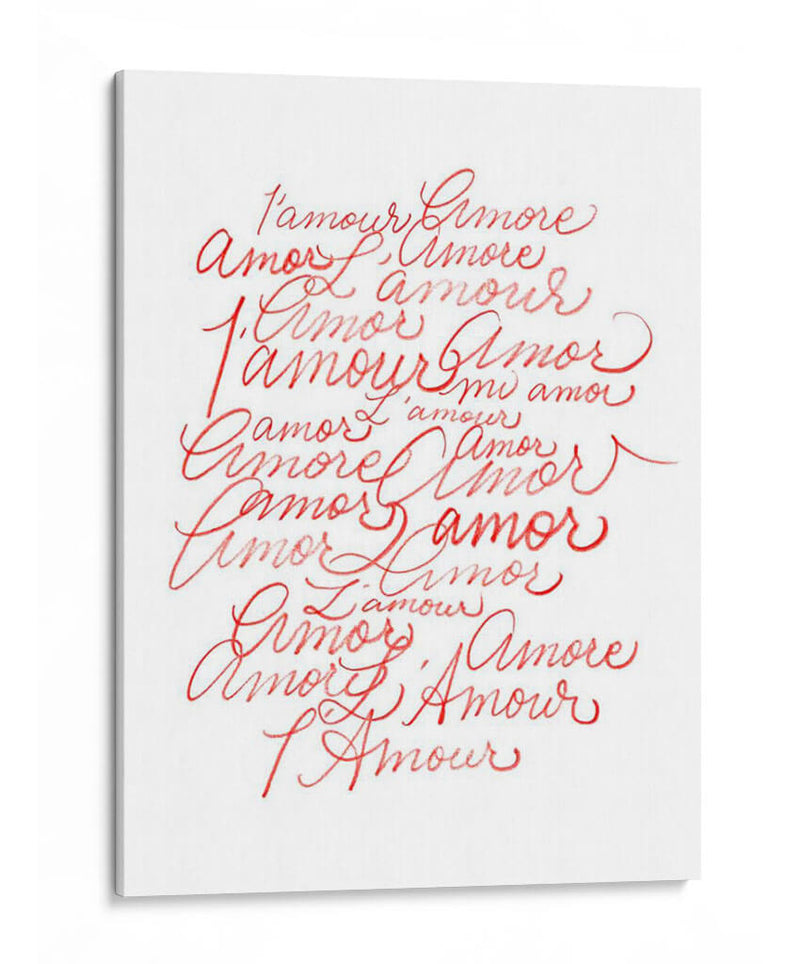 l'amour Amore
Amor L'Amore
amour
Amor
l'amour Amor
mi amor
L'amour
amor Amor
Amore Amor
amor amor
Amor Amor
L'amour
Amor Amore
Amore L'Amour
l'Amour